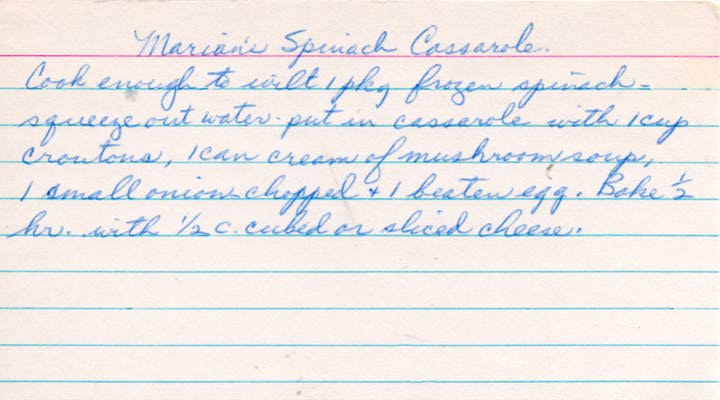 Marian's Spinach Cassarole.
Cook enough to wilt 1 pkg frozen spinach -
squeeze out water - put in casserole with 1 cup
croutons, 1 can cream of mushroom soup,
1 small onion chopped + 1 beaten egg. Bake ½
hr. with ½ c. cubed or sliced cheese.